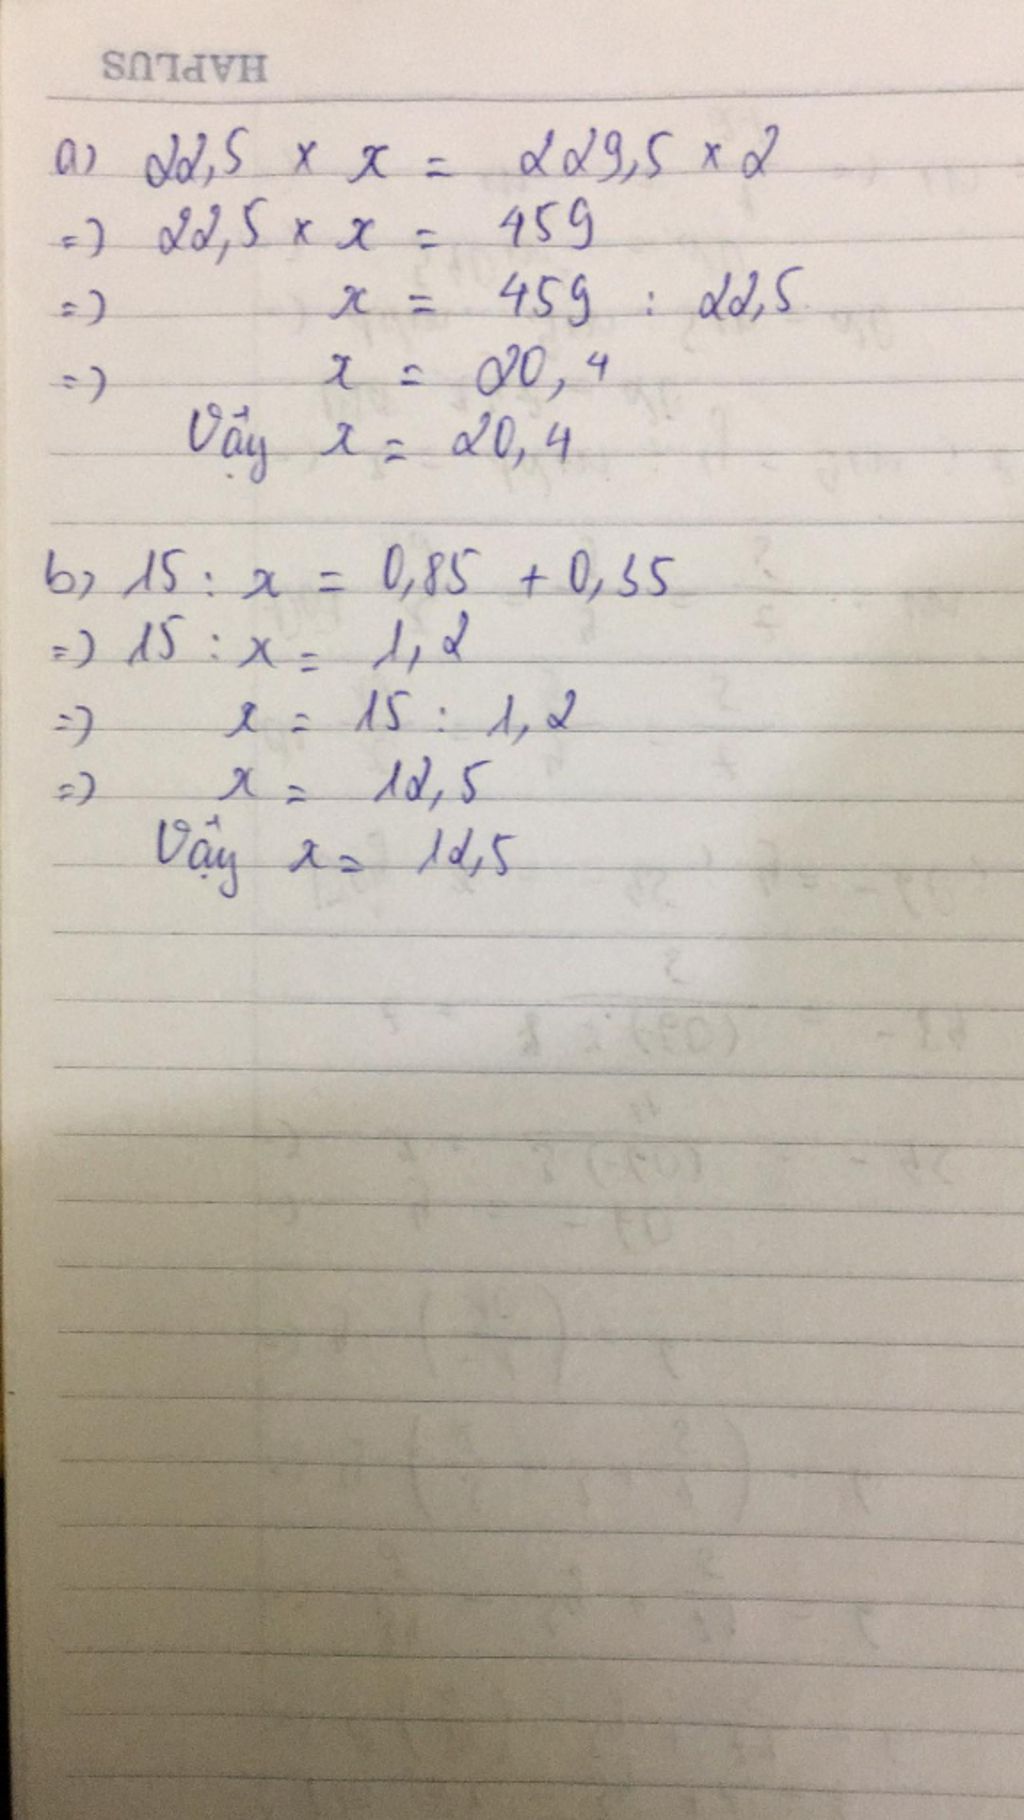 HAPLUS
a) 22,5 × x = 229,5 × 2
=) 22,5 × x = 459
=) x = 459 : 22,5
=) x = 20,4
Vậy x = 20,4
b) 15 : x = 0,85 + 0,35
=) 15 : x = 1,2
=) x = 15 : 1,2
=) x = 12,5
Vậy x = 12,5